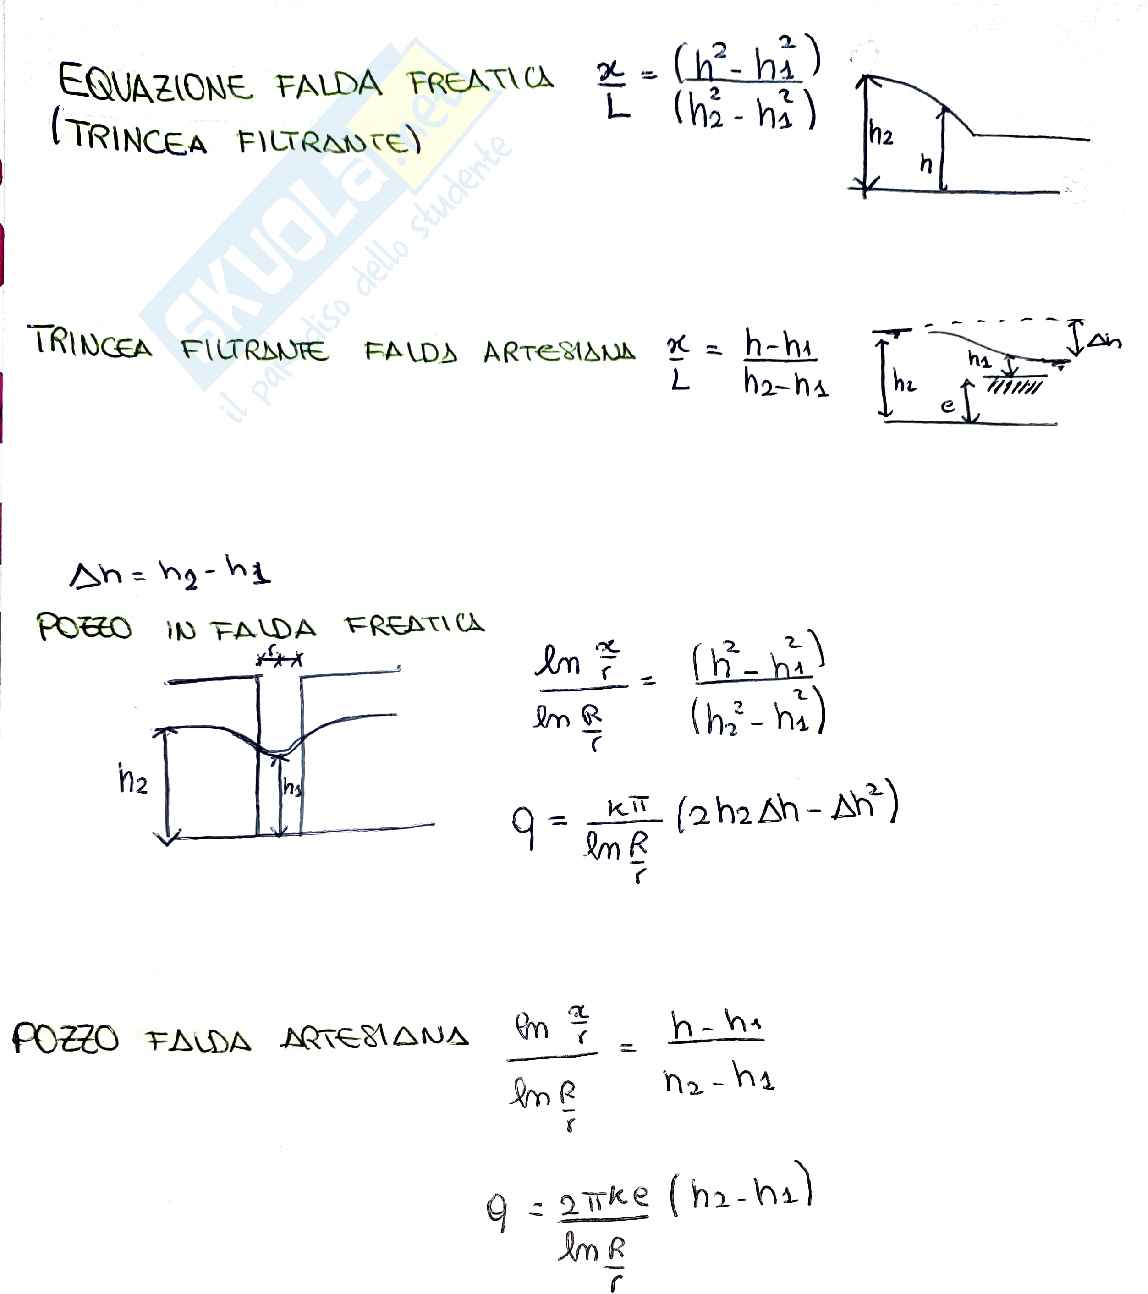 EQUAZIONE FALDA FREATICA x/L = (h² - h1²)/(h2² - h1²)
(TRINCEA FILTRANTE)
h2
h
SKUOLA.net
il paradiso dello studente
TRINCEA FILTRANTE FALDA ARTESIANA x/L = h-h1/h2-h1
h2
h1
Δh
e
Δh = h2 - h1
POZZO IN FALDA FREATICA
r
h2
h1
ln x/r / ln R/r = (h² - h1²)/(h2² - h1²)
q = kπ/ln R/r (2h2Δh - Δh²)
POZZO FALDA ARTESIANA ln x/r / ln R/r = h-h1/h2-h1
q = 2πke/ln R/r (h2-h1)